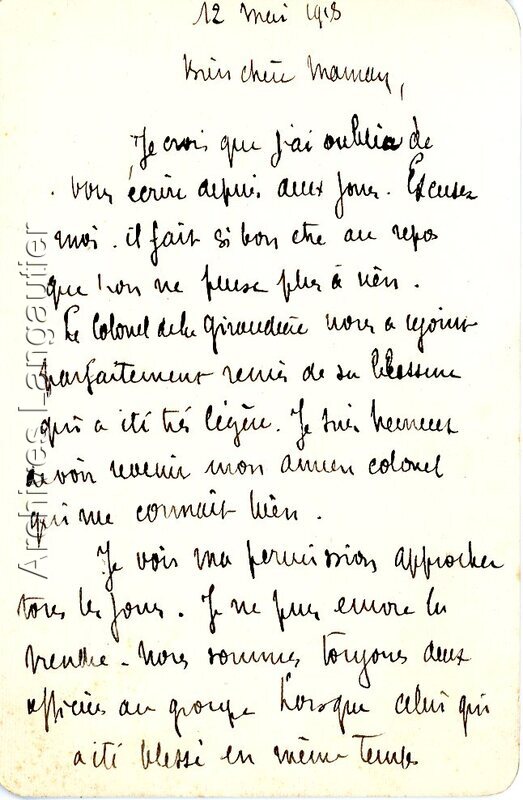 12 Mai 1918
Bien chère Maman,
Je crois que j'ai oublié de
vous écrire depuis deux jours. Excusez
moi. il fait si bon être au repos
que l'on ne pense plus à rien.
Le Colonel de la Giraudière nous a rejoint
parfaitement remis de sa blessure
qui a été très légère. Je suis heureux
de voir revenir mon ancien colonel
qui me connait bien.
Je vois ma permission approcher
tous les jours. Je ne puis encore la
prendre - Nous sommes toujours deux
officiers au groupe Lorsque celui qui
a été blessé en même temps
Archives Langautier